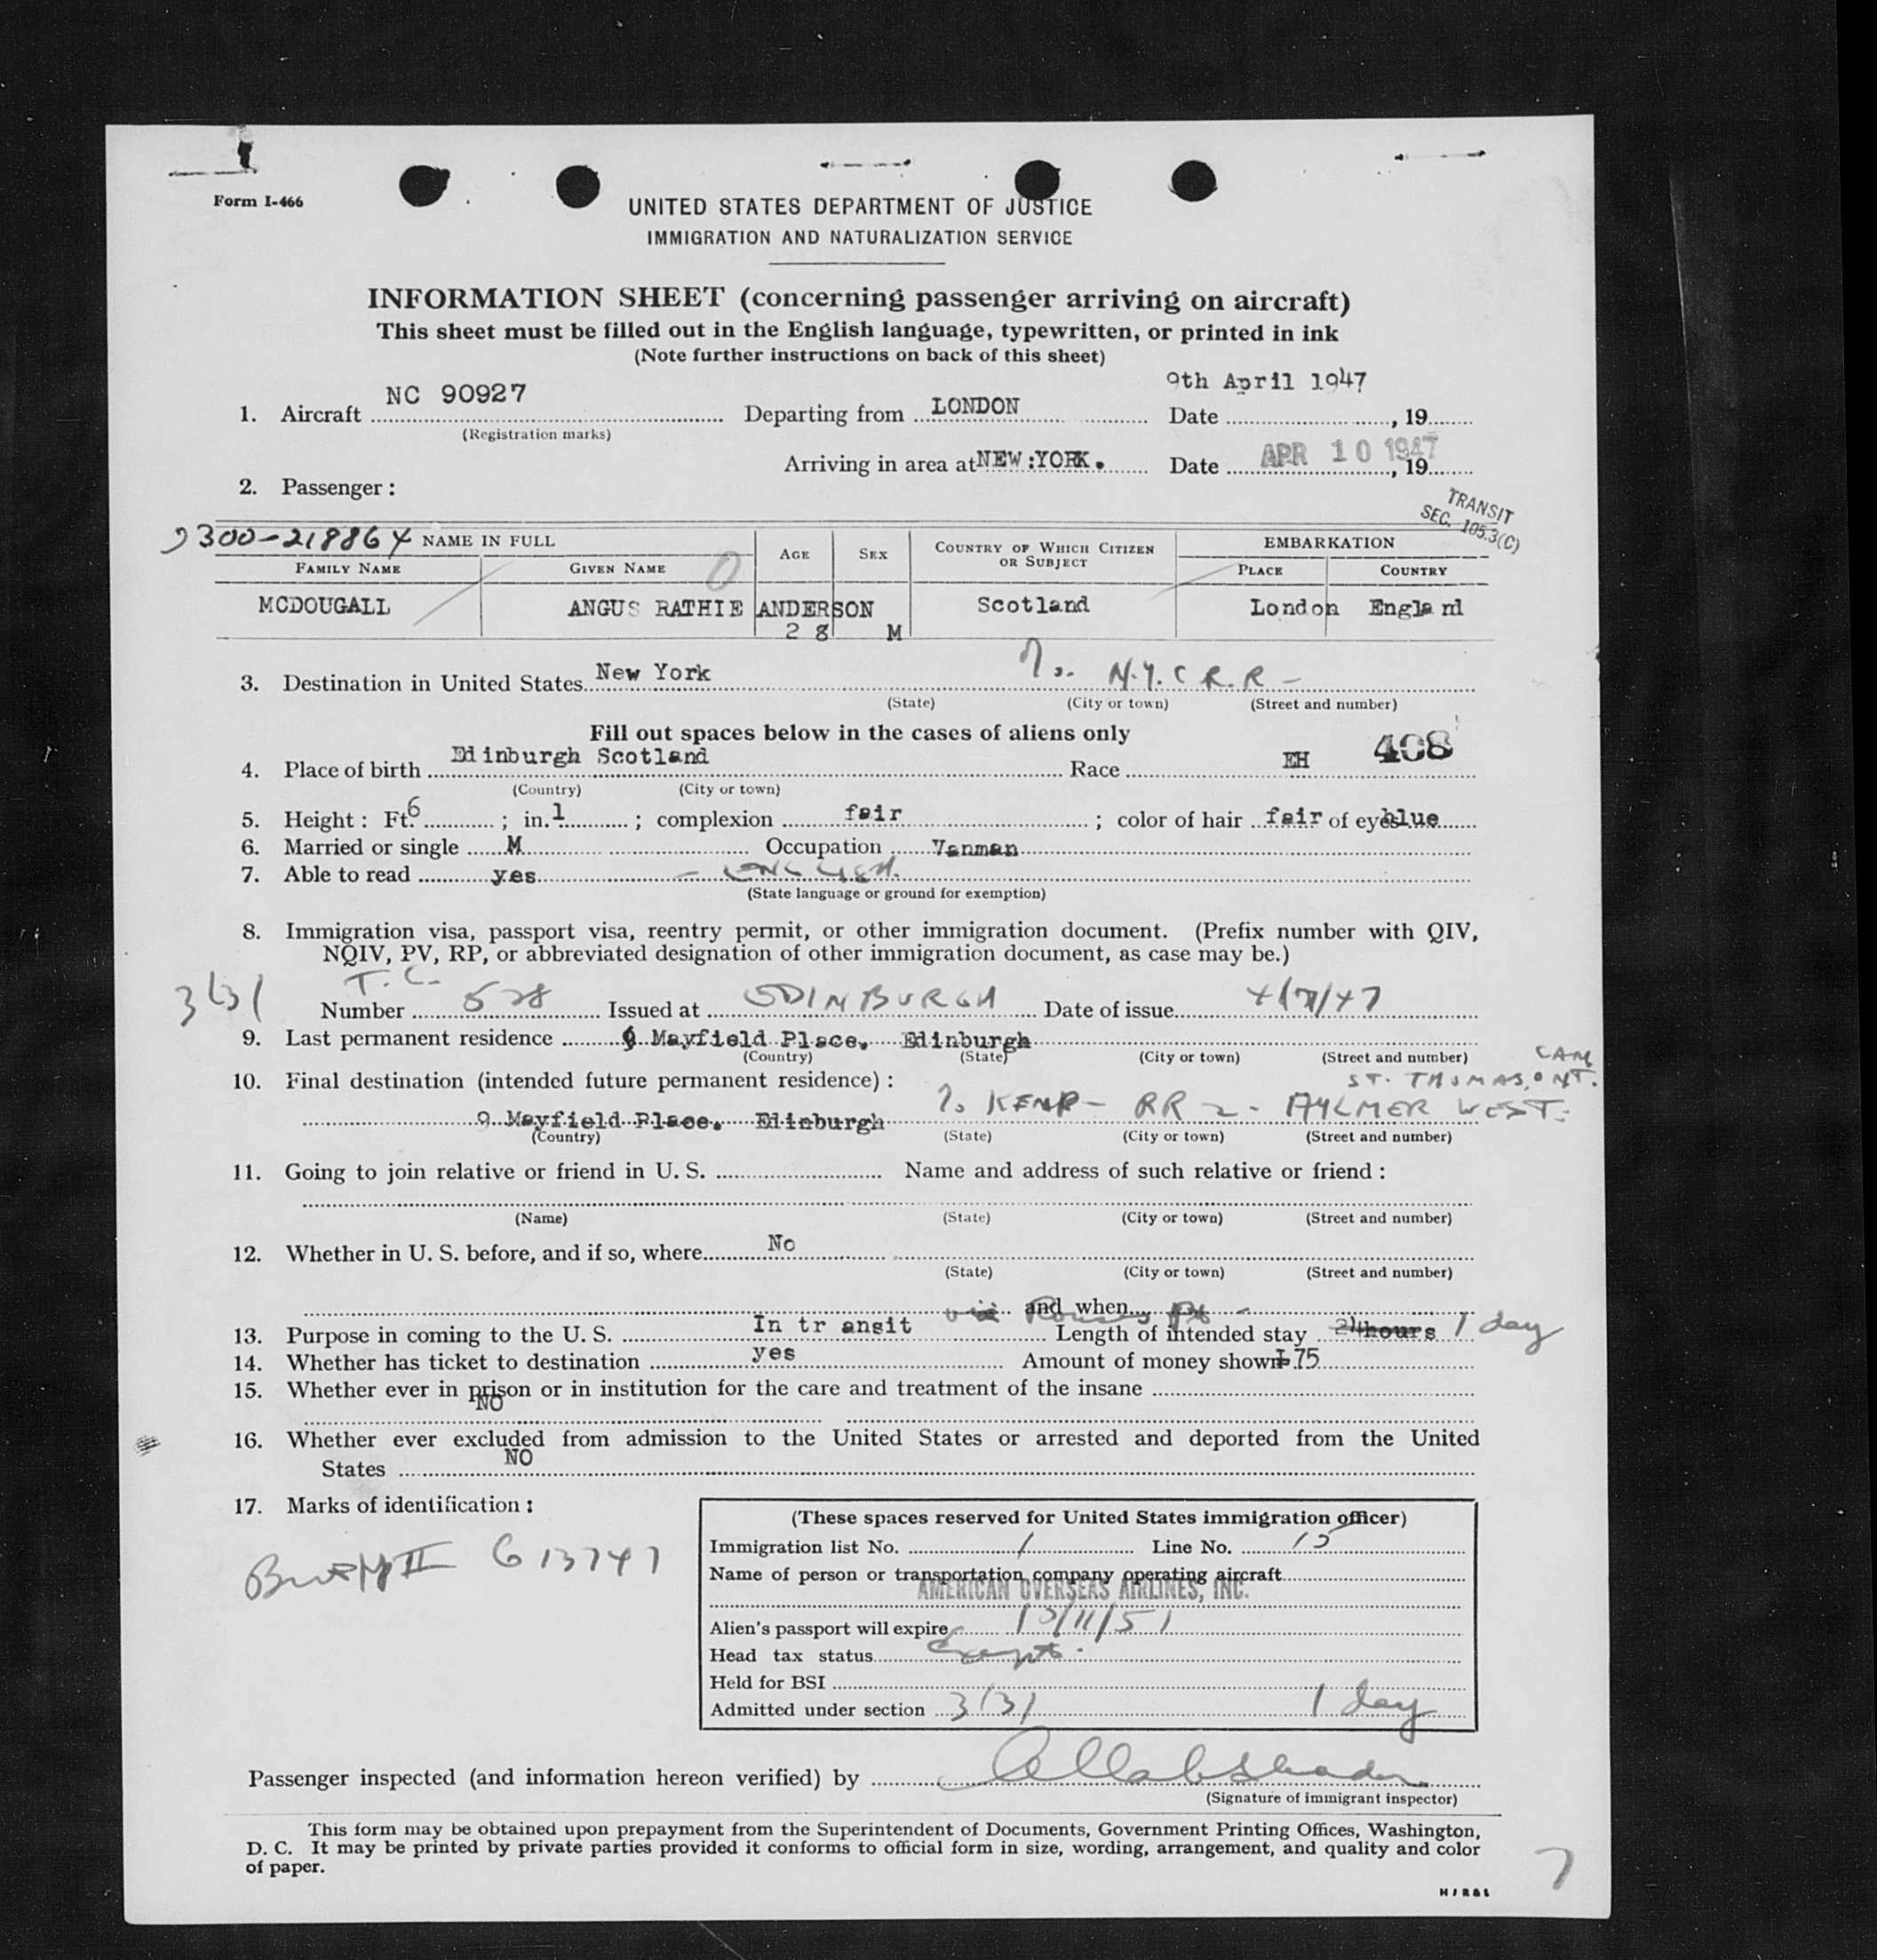 Form I-466
UNITED STATES DEPARTMENT OF JUSTICE
IMMIGRATION AND NATURALIZATION SERVICE
INFORMATION SHEET (concerning passenger arriving on aircraft)
This sheet must be filled out in the English language, typewritten, or printed in ink
(Note further instructions on back of this sheet)
9th April 1947
1. Aircraft NC 90927 Departing from LONDON Date , 19
(Registration marks)
Arriving in area at NEW:YORK. Date APR 10 1947 , 19
2. Passenger:
TRANSIT
SEC. 105.3(C)
300-218864 NAME IN FULL AGE SEX COUNTRY OF WHICH CITIZEN OR SUBJECT EMBARKATION
FAMILY NAME GIVEN NAME PLACE COUNTRY
MCDOUGALL ANGUS RATHIE ANDERSON Scotland London England
28 M
3. Destination in United States New York N.Y.C R.R -
(State) (City or town) (Street and number)
Fill out spaces below in the cases of aliens only
4. Place of birth Edinburgh Scotland Race EH 408
(Country) (City or town)
5. Height: Ft. 6 ; in. 1 ; complexion fair ; color of hair fair of eyes blue
6. Married or single M Occupation Vanman
7. Able to read yes - ENGLISH.
(State language or ground for exemption)
8. Immigration visa, passport visa, reentry permit, or other immigration document. (Prefix number with QIV,
NQIV, PV, RP, or abbreviated designation of other immigration document, as case may be.)
3(3) T.C.
Number 528 Issued at EDINBURGH Date of issue 4/7/47
9. Last permanent residence 9 Mayfield Place. Edinburgh
(Country) (State) (City or town) (Street and number)
CAN
10. Final destination (intended future permanent residence): ST. THOMAS, ONT.
9 Mayfield Place. Edinburgh KEMP - RR 2 - AYLMER WEST.
(Country) (State) (City or town) (Street and number)
11. Going to join relative or friend in U. S. Name and address of such relative or friend:
(Name) (State) (City or town) (Street and number)
12. Whether in U. S. before, and if so, where No
(State) (City or town) (Street and number)
and when via Rouses Pt -
13. Purpose in coming to the U. S. In tr ansit Length of intended stay 24hours 1 day
14. Whether has ticket to destination yes Amount of money shown £75
15. Whether ever in prison or in institution for the care and treatment of the insane
NO
16. Whether ever excluded from admission to the United States or arrested and deported from the United
States NO
17. Marks of identification:
613747
(These spaces reserved for United States immigration officer)
Immigration list No. 1 Line No. 15
Name of person or transportation company operating aircraft
AMERICAN OVERSEAS AIRLINES, INC.
Alien's passport will expire 10/11/51
Head tax status Exempt.
Held for BSI
Admitted under section 3(3) 1 day
Passenger inspected (and information hereon verified) by
(Signature of immigrant inspector)
This form may be obtained upon prepayment from the Superintendent of Documents, Government Printing Offices, Washington,
D. C. It may be printed by private parties provided it conforms to official form in size, wording, arrangement, and quality and color
of paper.
7